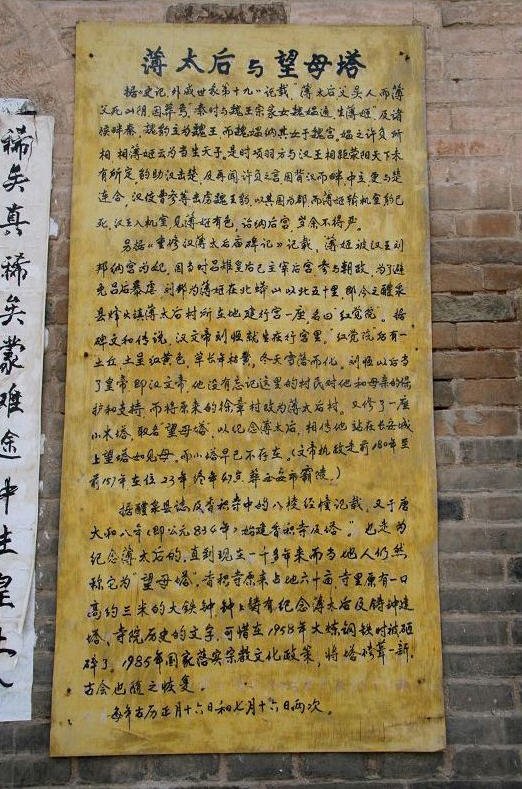 薄太后与望母塔
据《史记，外戚世家第十九》记载，"薄太后父吴人而薄
父死山阴，因葬焉。秦时与魏王宗家女魏媪通，生薄姬"及诸
侯畔秦，魏豹立为魏王，而魏媪纳其女于魏宫，媪之许负所
相，相薄姬云当生天子。是时项羽方与汉王相距荥阳天下未
有所定，豹助汉击楚，及再闻许负之言因背汉而畔，中立更与楚
连合。汉使曹参等击虏魏王豹，以其国为郡，而薄姬输织室豹已
死，汉王入织室，见薄姬有色，诏纳后宫，岁余不得幸。
另据《重修汉薄太后庙碑记》记载，薄姬被汉王刘
邦纳宫为妃，因当时吕雉皇后已主宰后宫，参与朝政，为了避
免吕后暴虐，刘邦为薄姬在北嵯山以北五十里，即今之醴泉
县烽火镇薄太后村所在地建行宫一座名曰"红觉院"。据
碑文和传说，汉文帝刘恒就生在行宫里。"红觉院后有一
土丘，土呈红黄色，草长年枯黄，冬天雪落而化。刘恒以后当
了皇帝即汉文帝，他没有忘记这里的村民对他和母亲的保
护和支持，而将原来的徐章村改为薄太后村。又修了一座
小木塔，取名"望母塔"，以纪念薄太后，相传他站在长安城
上望塔如见母。而小塔早已不存在。（文帝执政是前180年至
前157年在位23年终年47岁葬西安市霸陵。）
据醴泉县志及香积寺中的八棱经幢记载，又于唐
大和八年（即公元834年）始建香积寺及塔"。也是为
纪念薄太后的，直到现在一千多年来而当地人仍然
称它为"望母塔，香积寺原来占地六十亩，寺里原有一口
高约三米的大铁钟，钟上铸有纪念薄太后及铸钟建
塔、寺院历史的文字，可惜在1958年大炼钢铁时被砸
碎了。1985年国家落实宗教文化政策，将塔修葺一新，
古会也随之恢复。
每年古历正月十六日和七月十六日两次。
稀矣真稀矣蒙难途中生皇